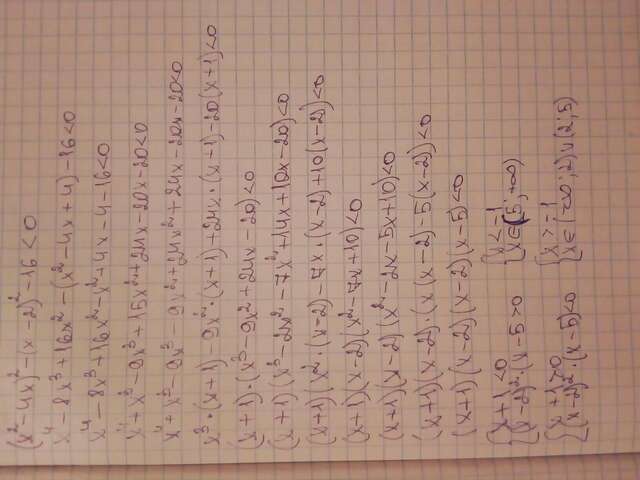 (x²-4x)²-(x-2)²-16<0
x⁴-8x³+16x²-(x²-4x+4)-16<0
x⁴-8x³+16x²-x²+4x-4-16<0
x⁴+x³-9x³+15x²+24x-20x-20<0
x⁴+x³-9x³-9x²+24x²+24x-20x-20<0
x³·(x+1)-9x²·(x+1)+24x·(x+1)-20(x+1)<0
(x+1)·(x³-9x²+24x-20)<0
(x+1)(x³-2x²-7x²+14x+10x-20)<0
(x+1)(x²·(x-2)-7x·(x-2)+10(x-2)<0
(x+1)(x-2)(x²-7x+10)<0
(x+1)(x-2)(x²-2x-5x+10)<0
(x+1)(x-2)·(x(x-2)-5(x-2)<0
(x+1)(x-2)(x-2)(x-5)<0
{x+1<0 {x<-1
{(x-2)²·(x-5>0 {x∈(5;+∞)
{x+1>0 {x>-1
{(x-2)²·(x-5)<0 {x∈(-∞;2)∪(2;5)